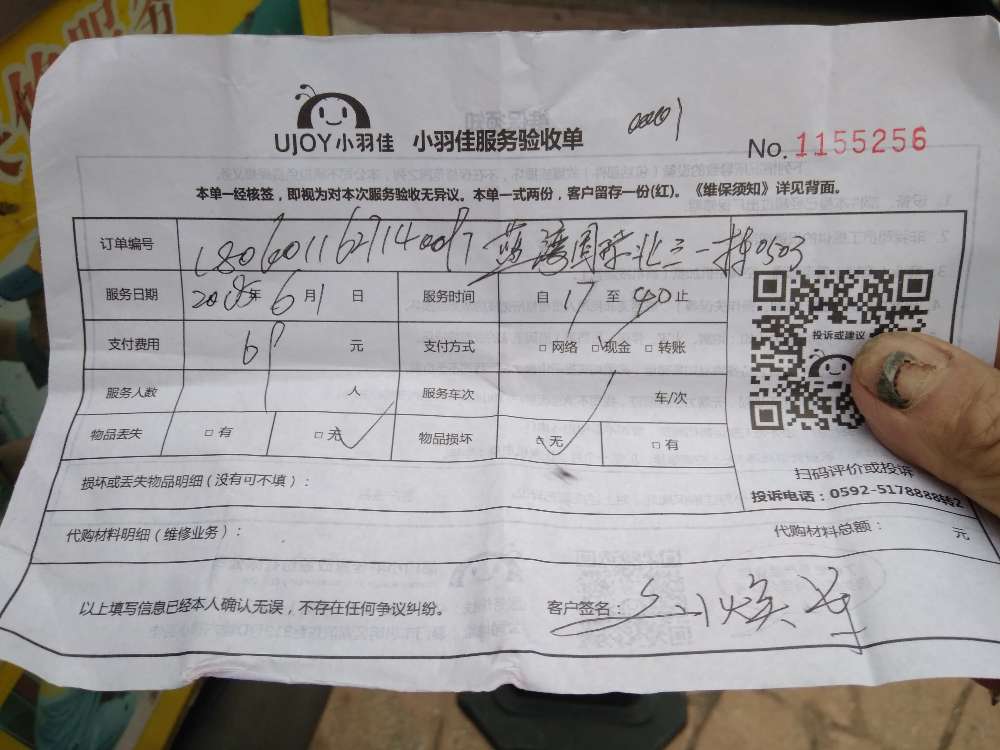 UJOY小羽佳 小羽佳服务验收单
No. 1155256
本单一经核签，即视为对本次服务验收无异议。本单一式两份，客户留存一份(红)。《维保须知》详见背面。
订单编号
服务日期 年 6 月 1 日 服务时间 自 17 至 40 止
支付费用 元 支付方式 □ 网络 □ 现金 □ 转账
服务人数 1 人 服务车次 1 车/次
物品丢失 □ 有 □ 无 物品损坏 □ 无 □ 有
投诉或建议
扫码评价或投诉
投诉电话：0592-5178888转2
损坏或丢失物品明细（没有可不填）：
代购材料明细（维修业务）： 代购材料总额： 元
以上填写信息已经本人确认无误，不存在任何争议纠纷。 客户签名：